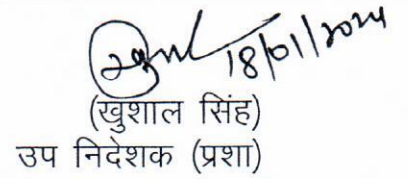 18/01/2024
(खुशाल सिंह)
उप निदेशक (प्रशा)